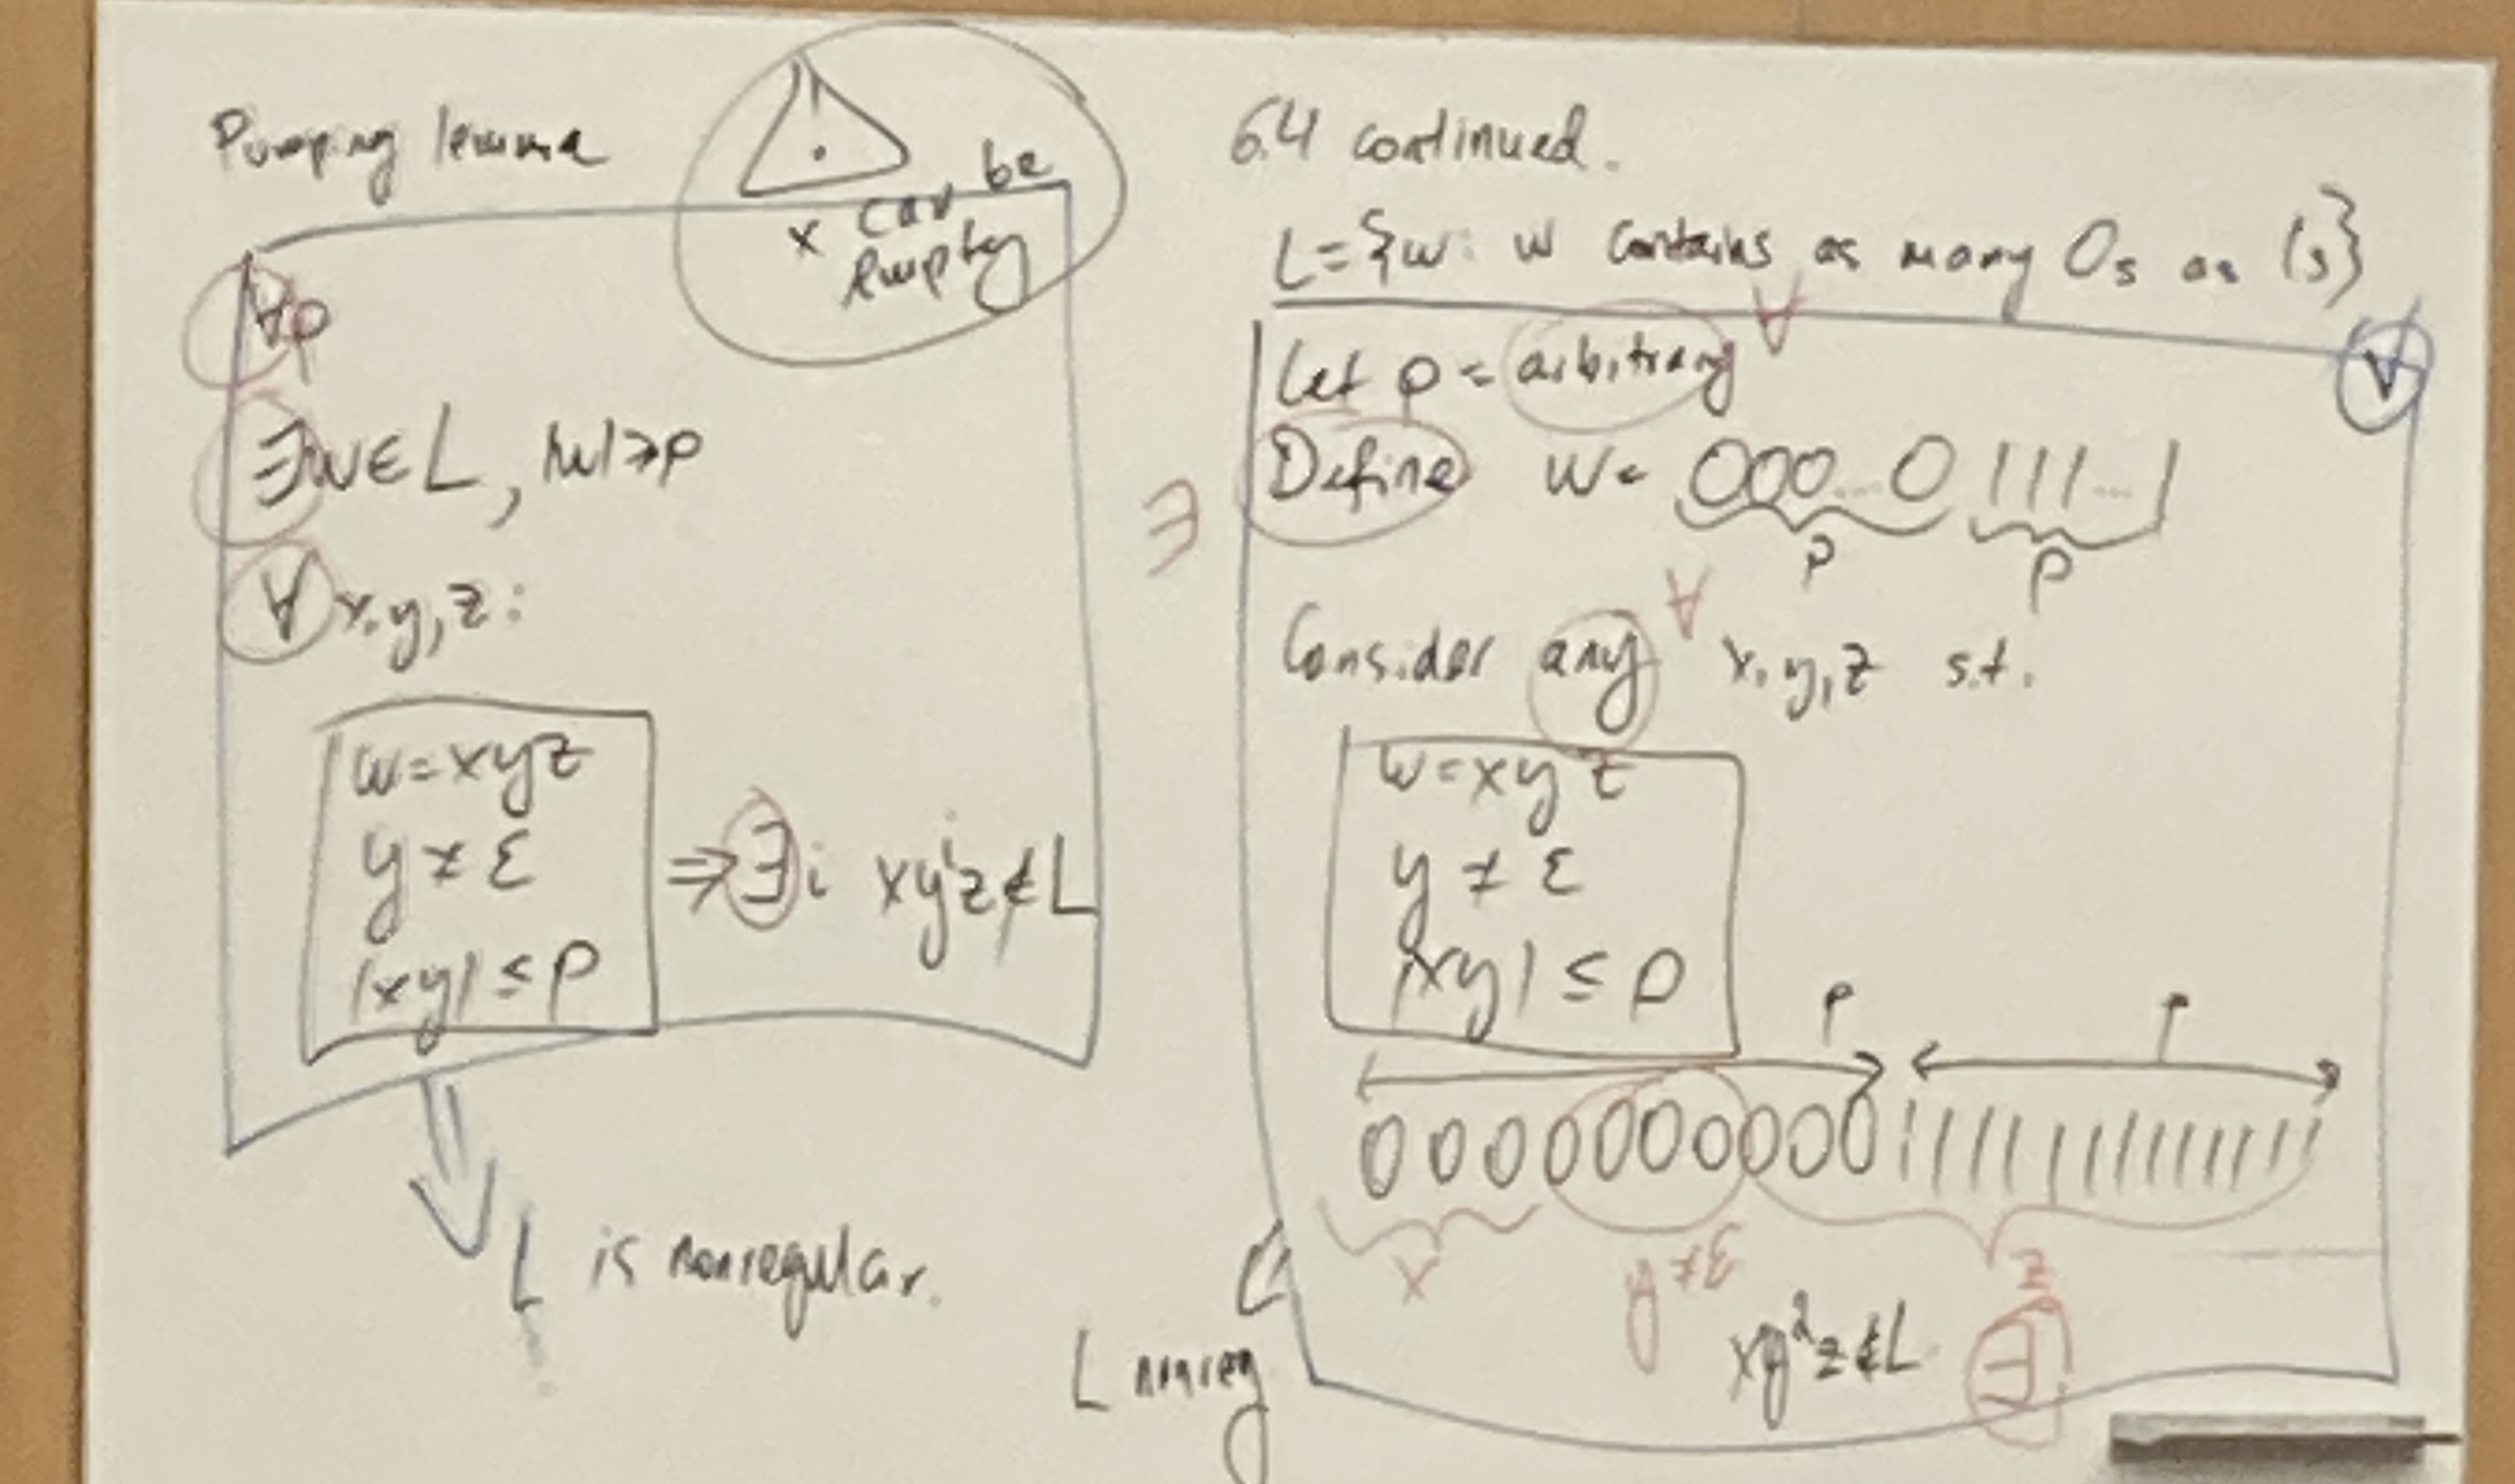 Pumping lemma
x can be
empty
∀p
∃w∈L, |w|≥p
∀x,y,z:
w=xyz
y≠ε
|xy|≤p
⇒∃i xyⁱz∉L
L is nonregular.
6.4 continued.
L={w: w contains as many 0s as 1s}
Let p = arbitrary ∀
∀
∃ Define w= 000...0 111...1
p p
Consider any ∀ x,y,z s.t.
w=xyz
y≠ε
|xy|≤p
p p
0000000000 111111111111111
x y≠ε z
xy²z∉L ∃
L nonreg